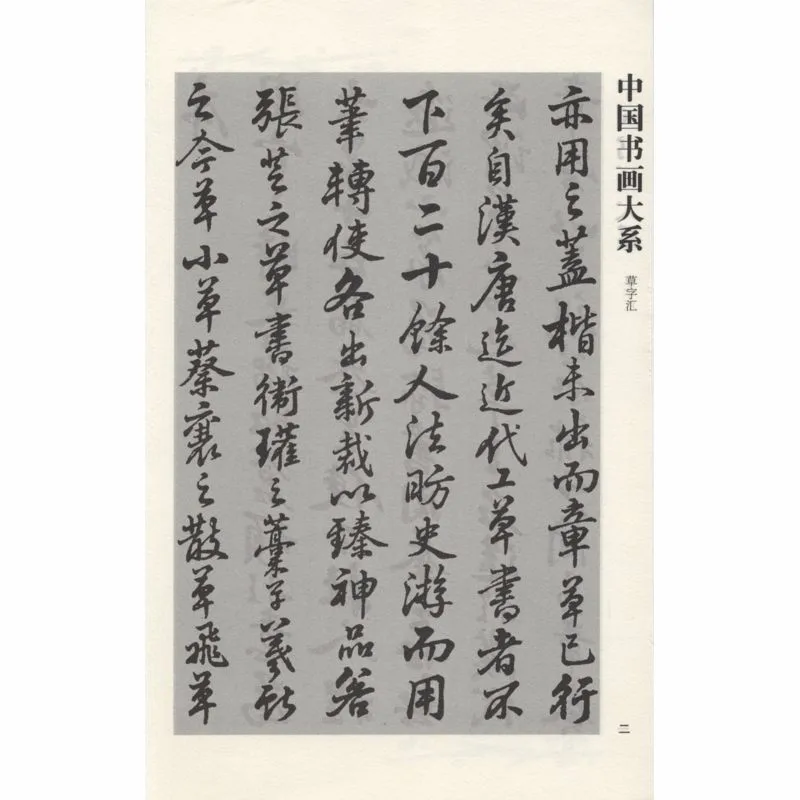 中国书画大系
草字汇
亦用之蓋楷未出而章草已行
矣自漢唐迄近代工草書者不
下百二十餘人法昉史游而用
筆轉使各出新裁以臻神品若
張芝之草書衛瓘之藁字羲獻
之今草小草蔡襄之散草飛草
二